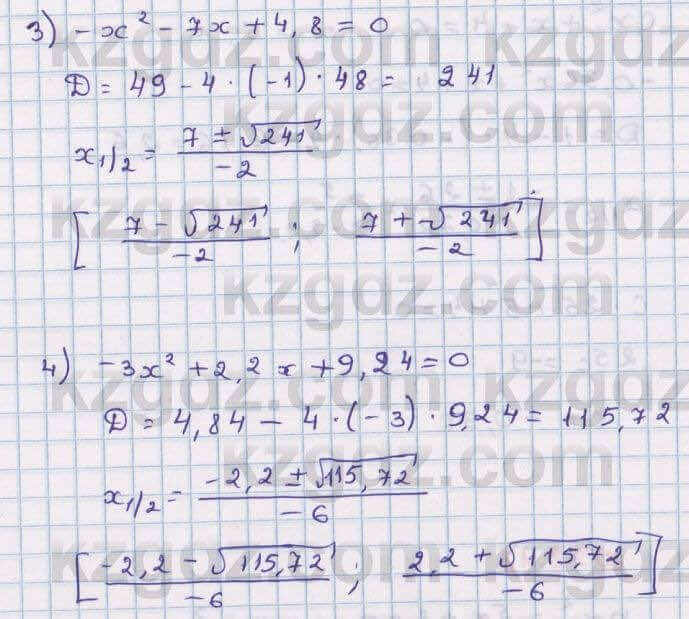 3) -x² - 7x + 4,8 = 0
D = 49 - 4 · (-1) · 48 = 241
x₁/₂ = (7 ± √241)/(-2)
[ (7 - √241)/(-2) ; (7 + √241)/(-2) ]
4) -3x² + 2,2x + 9,24 = 0
D = 4,84 - 4 · (-3) · 9,24 = 115,72
x₁/₂ = (-2,2 ± √115,72)/(-6)
[ (-2,2 - √115,72)/(-6) ; (2,2 + √115,72)/(-6) ]
kzgdz.com